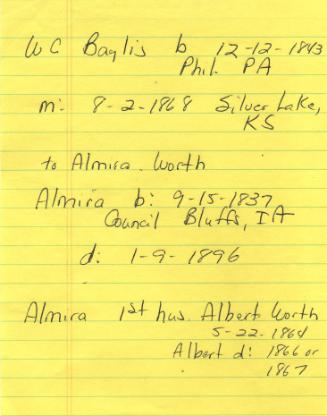 WC Baylis b 12-12-1843
Phil. PA
m: 8-2-1868 Silver Lake,
KS
to Almira Worth
Almira b: 9-15-1837
Council Bluffs, IA
d: 1-9-1896
Almira 1st hus. Albert Worth
5-22-1864
Albert d: 1866 or
1867